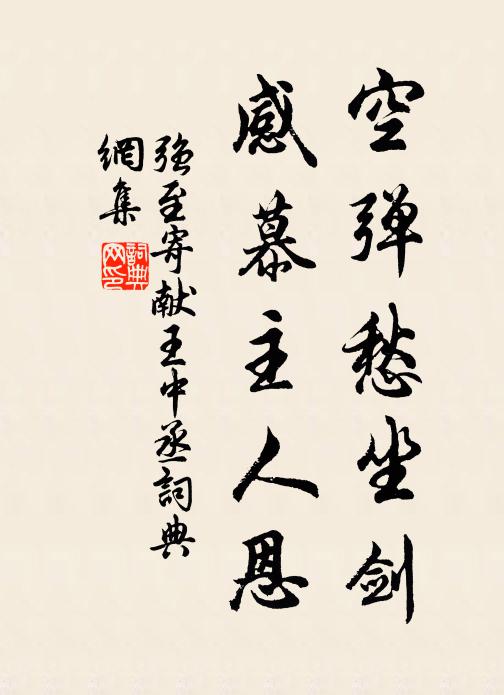 空弹愁坐剑
感慕主人恩
強至寄献王中丞詞典
網集
詞典
网印